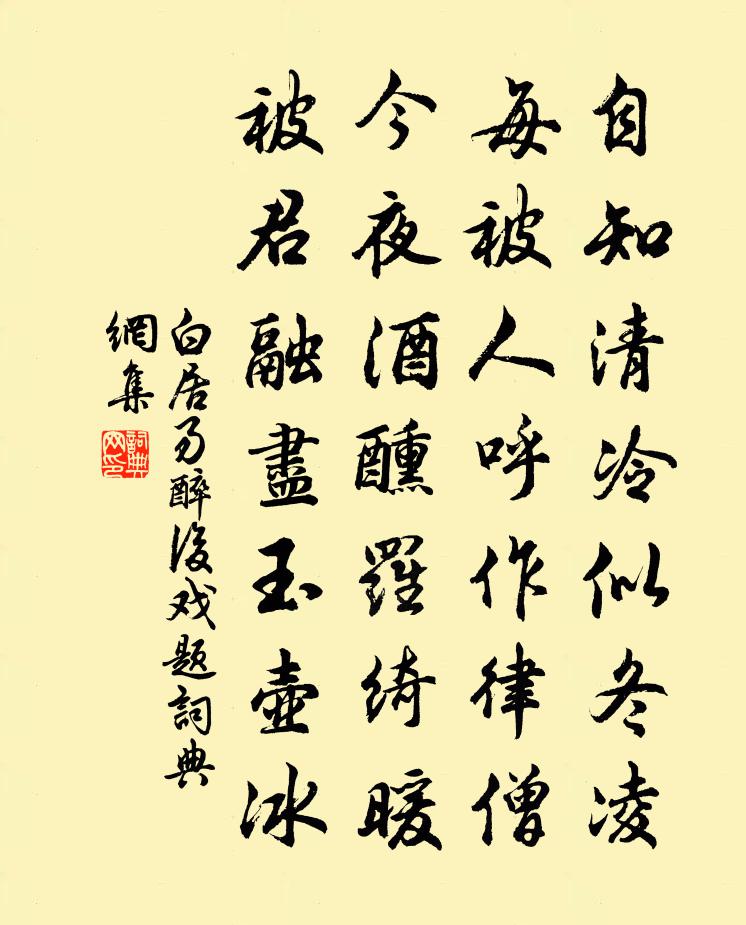 自知清冷似冬凌
每被人呼作律僧
今夜酒醺羅綺暖
被君融盡玉壺冰
白居易醉後戏題詞典
網集
詞典
网印